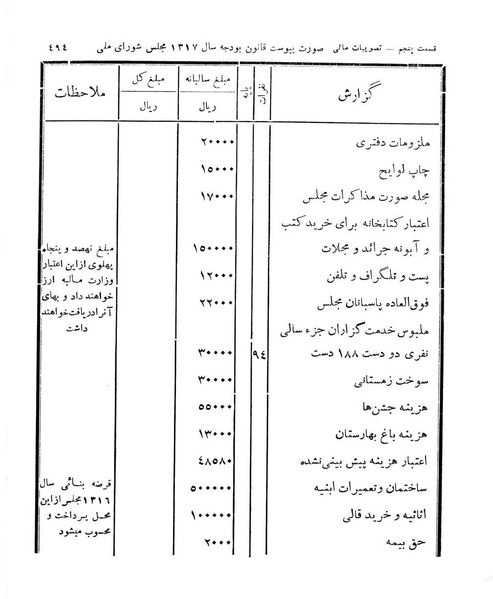 قسمت پنجم — تصویبات مالی صورت پیوست قانون بودجه سال ۱۳۱۷ مجلس شورای ملی ۴۹۴
گزارش نفرات پایه مبلغ سالیانه ریال مبلغ کل ریال ملاحظات
ملزومات دفتری ۲۰۰۰۰
چاپ لوایح ۱۵۰۰۰
مجله صورت مذاکرات مجلس ۱۷۰۰۰
اعتبار کتابخانه برای خرید کتب
و آبونه جرائد و مجلات ۱۵۰۰۰۰ مبلغ نهصد و پنجاه
پست و تلگراف و تلفن ۱۲۰۰۰ پهلوی از این اعتبار
وزارت مالیه ارز
فوق‌العاده پاسبانان مجلس ۲۲۰۰۰ خواهند داد و بهای
آنرا دریافت خواهند
ملبوس خدمت گزاران جزء سالی داشت
نفری دو دست ۱۸۸ دست ۹۴ ۳۰۰۰۰
سوخت زمستانی ۳۰۰۰۰
هزینه جشن‌ها ۵۵۰۰۰
هزینه باغ بهارستان ۱۳۰۰۰
اعتبار هزینه پیش بینی نشده ۴۸۵۸۰
ساختمان و تعمیرات ابنیه ۵۰۰۰۰۰ قرضه بنائی سال
۱۳۱۶ مجلس از این
اثاثیه و خرید قالی ۱۰۰۰۰۰ محل پرداخت و
حق بیمه ۲۰۰۰ محسوب میشود